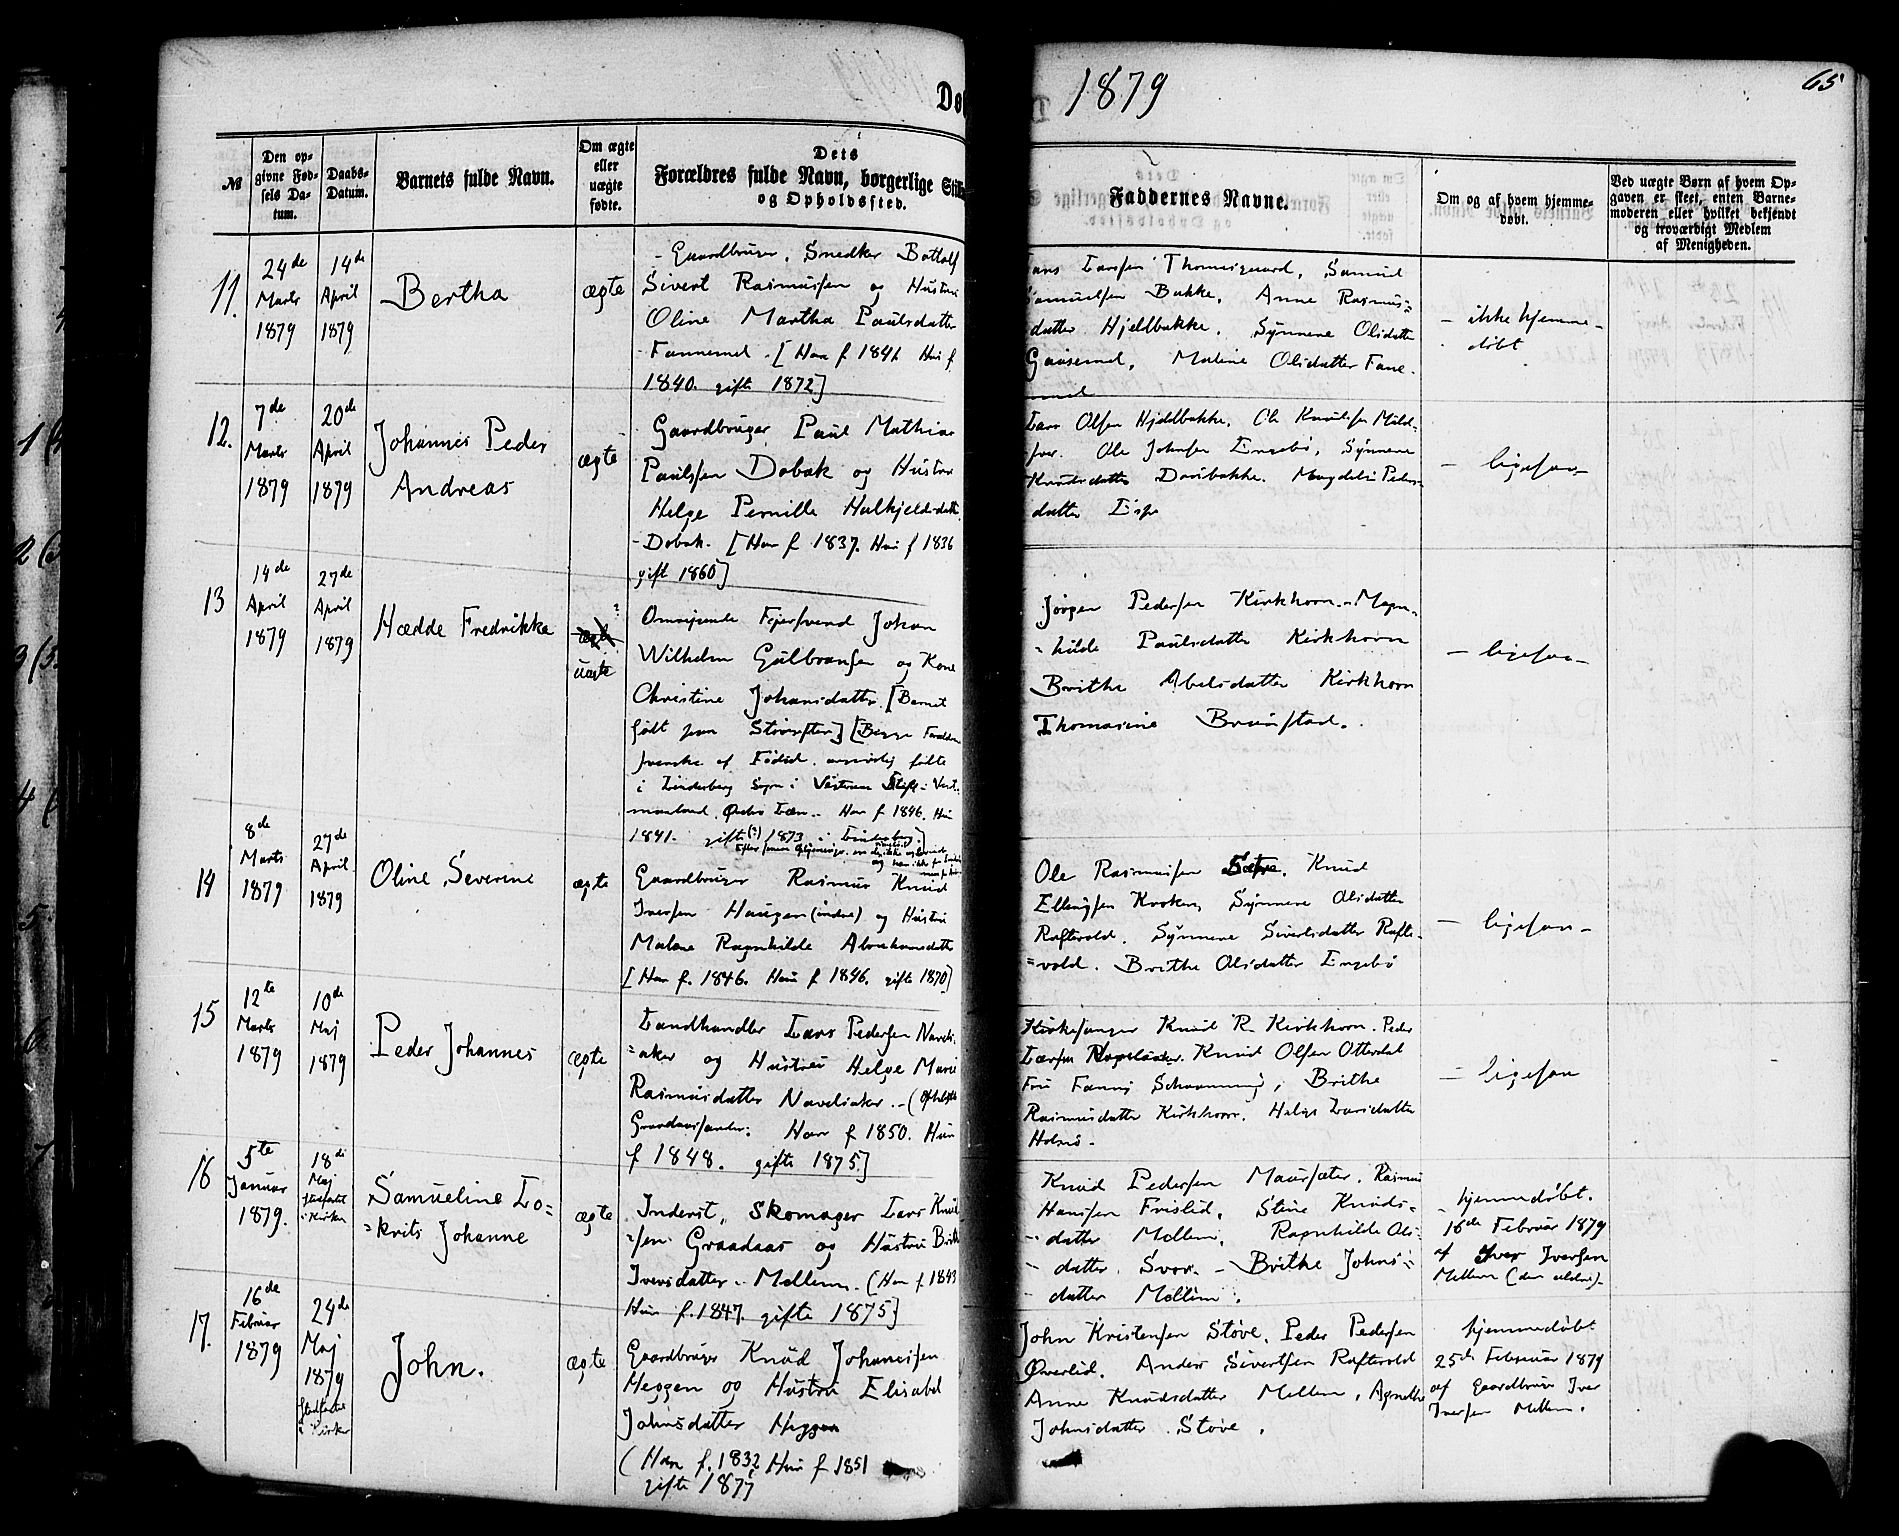 1879
65
Dø
№
Den op-
givne Fød-
sels Da-
tum.
Daabs-
Datum.
Barnets fulde Navn.
Om ægte
eller
uægte
fødte.
Dets
Forældres fulde Navn, borgerlige Still
og Opholdssted.
Faddernes Navne.
Om og af hvem hjemme-
døbt.
Ved uægte Børn af hvem Op-
gaven er skeet, enten Barne-
moderen eller hvilket bekjendt
og troværdigt Medlem
af Menigheden.
11.
24de
Marts
1879
14de
April
1879
Bertha
ægte
Gaardbruger, Snedker Bottolf
Sivert Rasmussen og Hustru
Oline Martha Paulsdatter
Fannemel. [Han f 1841 Hun f.
1840. gifte 1872]
Lars Larssen Thomasgaard, Samuel
Samuelsen Bakke, Anne Rasmus=
datter Hjellbakke, Synneve Olsdatter
Gausemel, Malene Olsdatter Fane-
mel
- ikke hjemme-
døbt
12.
7de
Marts
1879
20de
April
1879
Johannes Peder
Andreas
ægte
Gaardbruger Paul Mathias
Paulssen Dobak og Hustru
Helge Pernille Halkjeldsdatt
Dobak. [Han f 1837. Hun f 1836
gift 1860]
Lars Olsen Hjellbakke, Ole Knudsen
Ole Johnsen Engebø, Synneve
Knudsdatter Davebakke. Magdeli Peders-
datter Espe
- ligesaa -
13
14de
April
1879
27de
April
1879
Hædde Fredrikke
ægte ?
uægte
Omreisende Fejersvend Johan
Wilhelm Gulbransen og Kone
Christine Johansdatter. [Barnet
født paa ] [Begge
svenske af Fødsel.
i Linderberg Sogn i Vesteraas Stift - Vest-
manland, Ørebro Læn. - Han f 1846. Hun
1841. gifte (?) 1873 i Linderberg]
Jørgen Pedersen Kirkhorn. - Magn-
=hilde Paulsdatter Kirkhorn
Brithe Abelsdatter Kirkhorn
Thomasine Brunstad.
- ligesaa -
14
8de
Marts
1879
27de
April
1879
Oline Severine
ægte
Gaardbruger Rasmus Knud
Iversen Haugen (indre) og Hustru
Malene Ragnhilde Abrahamsdatt
[Han f. 1846. Hun f 1846. gifte 1870]
Ole Rasmussen Sætre, Knud
Ellingsen Kroken, Synneve Olsdatter
Raftevold. Synneve Sivertsdatter Rafte-
=vold. Brithe Olsdatter Engebø
- ligesaa -
15
12te
Marts
1879
10de
Maj
1879
Peder Johannes
ægte
Landhandler Lars Pedersen Navels-
=aker og Hustru Helge Marie
Rasmusdatter Navelsaker. - (
Han f 1850. Hun
f 1848. gifte 1875]
Kirkesanger Knud R. Kirkhorn. Peder
Larsen Knud Olsen Otterdal
Fru Fanny Schanning, Brithe
Rasmusdatter Kirkhorn. Helge Larsdatter
- ligesaa
16
5te
Januar
1879.
18de
Maj
stadfæstet
i Kirken
Samueline Lo=
=krits Johanne
ægte
Inderst, Skomager Lars Knud
=sen Graadaas og Hustru Brith
Iversdatter Mellem. (Han f. 1843
Hun f. 1847. gifte 1875]
Knud Pedersen Maursæter, Rasmus
Hanssen Frislid, Stine Knuds-
datter Mellem, Ragnhilde Ols-
datter Svor. - Brithe Johns=
datter Mellem.
hjemmedøbt.
16de Februar 1879
af Iver Iversen
Mellem (den eldre).
17.
16de
Februar
1879
24de
Maj
1879
stadfæstet
i Kirken
John.
ægte
Gaardbruger Knud Johannessen
Heggen og Hustru Elisabet
Johnsdatter Heggen
(Han f. 1832 Hun f 1851
gifte 1877
John Kristensen Støve, Peder Pedersen
Øverlid. Anders Sivertsen Raftevold
Anne Knudsdatter Mellem, Agnethe
Johnsdatter Støve.
hjemmedøbt
25de Februar 1879
af Gaardbruger Iver
Iversen Mellem.